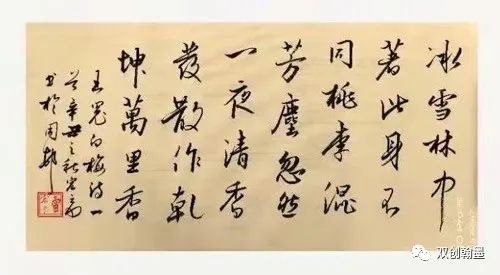 冰雪林中
著此身不
同桃李混
芳塵忽然
一夜清香
發散作乾
坤萬里香
王冕白梅诗一
辛丑之秋
书於周邨
双创翰墨